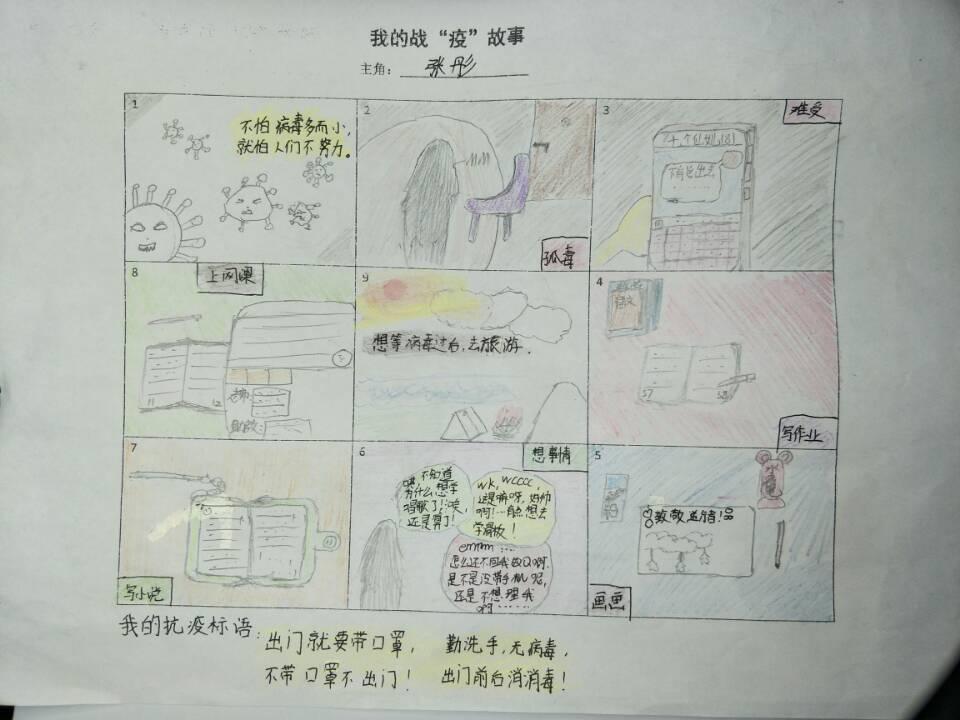 我的战“疫”故事
主角：张彤
1
不怕病毒多而小，
就怕人们不努力。
2
孤毒
3
难受
8
上网课
11 12
老师:
助教:
9
想等病毒过后，去旅游。
4
语文
57 58
写作业
7
写小说
6
想事情
不知道
为什么想学
了！唉，
还是算了！
WK，WCCCC，
这是啥呀，好帅
啊！…有点想去
学滑板！
emmm…
怎么还不回我 QQ啊，
是不是没带手机呢，
还是不想理我
啊……
5
致敬 者！
画画
我的抗疫标语：
出门就要带口罩， 勤洗手，无病毒，
不带口罩不出门！ 出门前后消消毒！